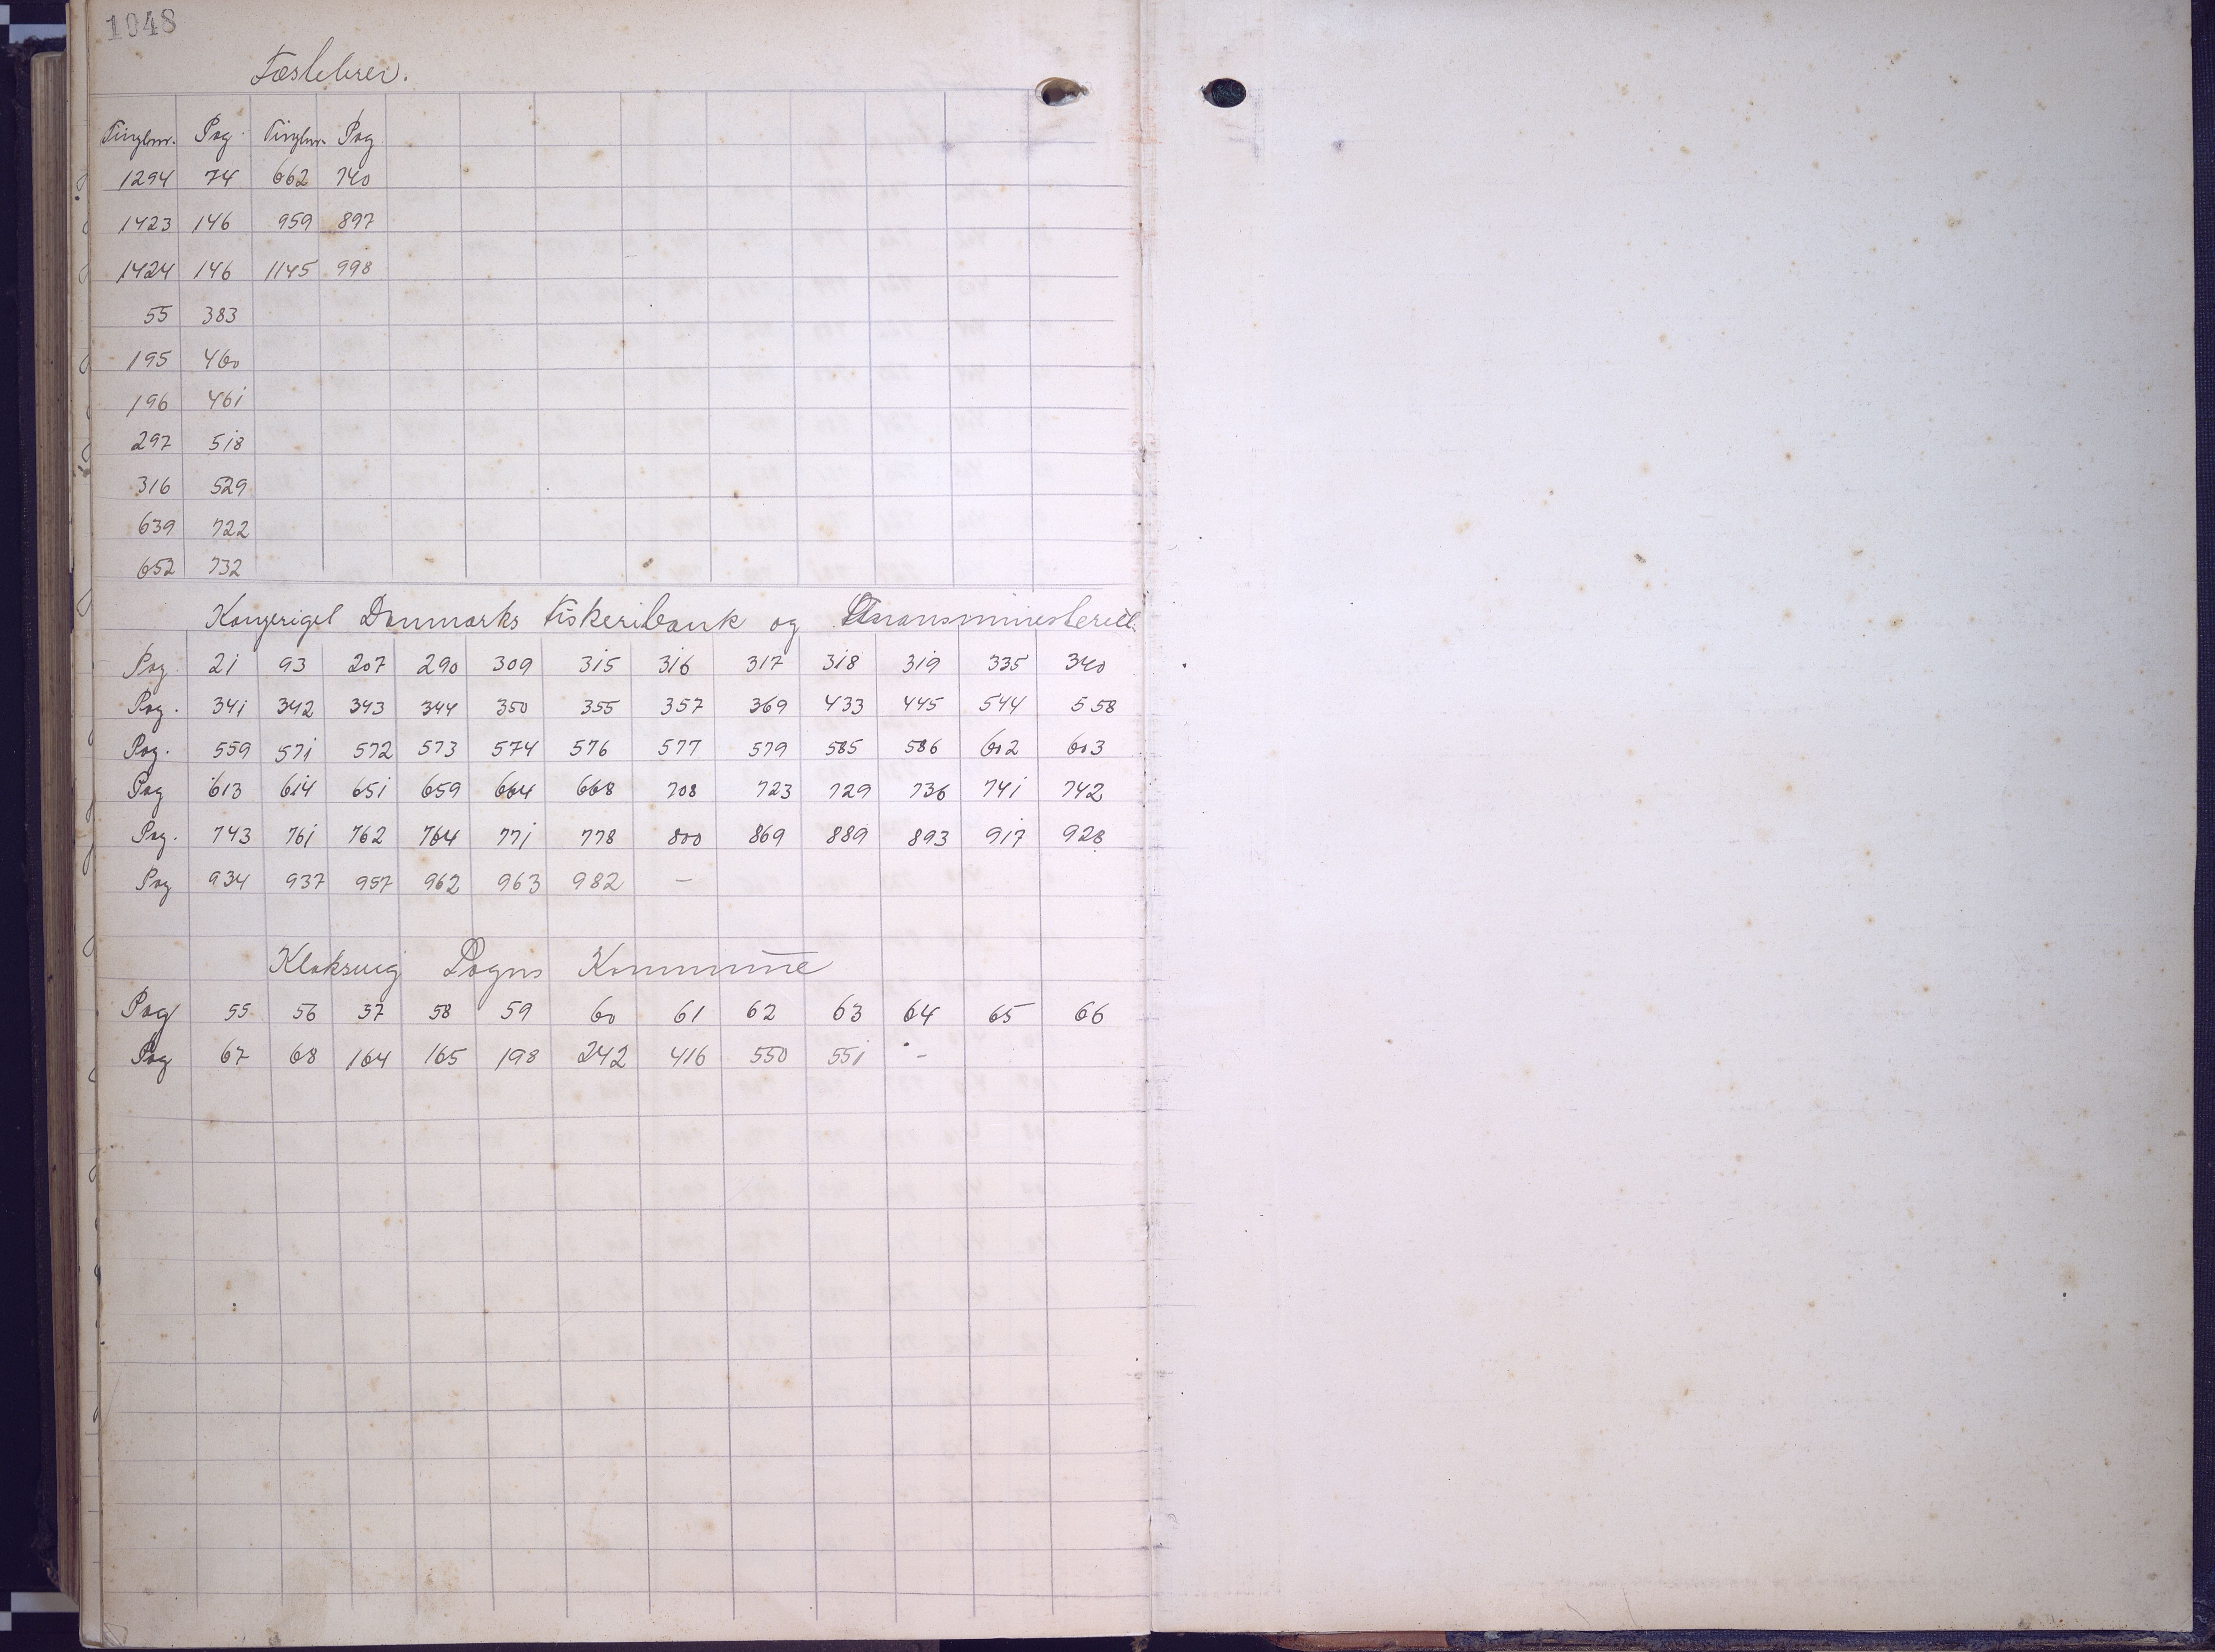 1048
Fæstebrev.
Tinglnr. Pag Tinglnr. Pag
1294 74 662 740
1423 146 959 897
1424 146 1145 998
55 383
195 460
196 461
297 518
316 529
639 722
652 732
Kongeriget Danmarks Fiskeribank og Finansministeriet.
Pag. 21 93 207 290 309 315 316 317 318 319 335 340
Pag. 341 342 343 344 350 355 357 369 433 445 544 558
Pag. 559 571 572 573 574 576 577 579 585 586 602 603
Pag 613 614 651 659 664 668 708 723 729 736 741 742
Pag. 743 761 762 764 771 778 800 869 889 893 917 928
Pag 934 937 957 962 963 982 —
Klaksvig Sogns Kommune
Pag 55 56 57 58 59 60 61 62 63 64 65 66
Pag 67 68 164 165 198 242 416 550 551 –